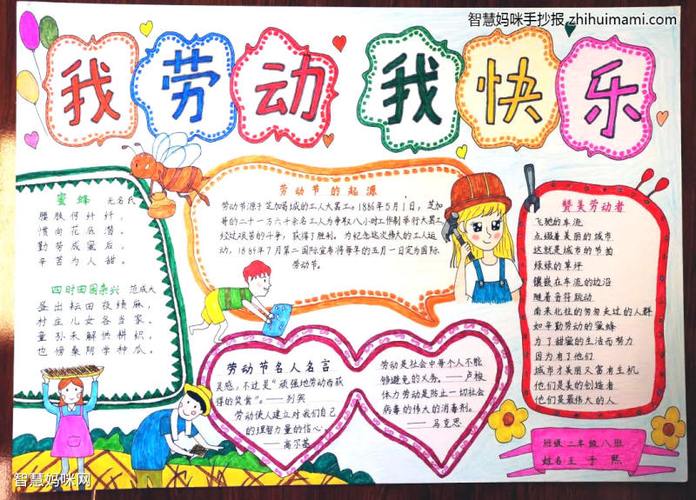 智慧妈咪手抄报 zhihuimami.com
我劳动我快乐
蜜蜂 无名氏
腰肢何纤纤，
惯向花底潜。
勤劳成蜜后，
辛苦为人甜。
四时田园杂兴 范成大
昼出耘田夜绩麻，
村庄儿女各当家。
童孙未解供耕织，
也傍桑阴学种瓜。
劳动节的起源
劳动节源于芝加哥城的工人大罢工。1886年5月1日，芝加
哥的二十一万六千余名工人为争取八小时工作制举行大罢工
经过艰苦的斗争，获得了胜利。为纪念这次伟大的工人运
动，1889年7月第二国际宣布将每年的五月一日定为国际
劳动节。
劳动节名人名言
灵感，不过是“顽强地劳动而获
得的奖赏”——列宾
劳动使人建立对我们自己
的理智力量的信心。
——高尔基
劳动是社会中每个人不能
够避免的义务。——卢梭
体力劳动是防止一切社会
病毒的伟大的消毒剂。
——马克思
赞美劳动者
飞驰的车流
点缀着美丽的城市
这就是城市的节拍
绿绿的草坪
镶嵌在车流的边沿
随着音符跳动
南来北往的匆匆走过的人群
如辛勤劳动的蜜蜂
为了甜蜜的生活而努力
因为有了他们
城市才美丽又富有生机
他们是美的创造者
他们是最伟大的人
班级：二年级八班
姓名：王予熙
智慧妈咪网